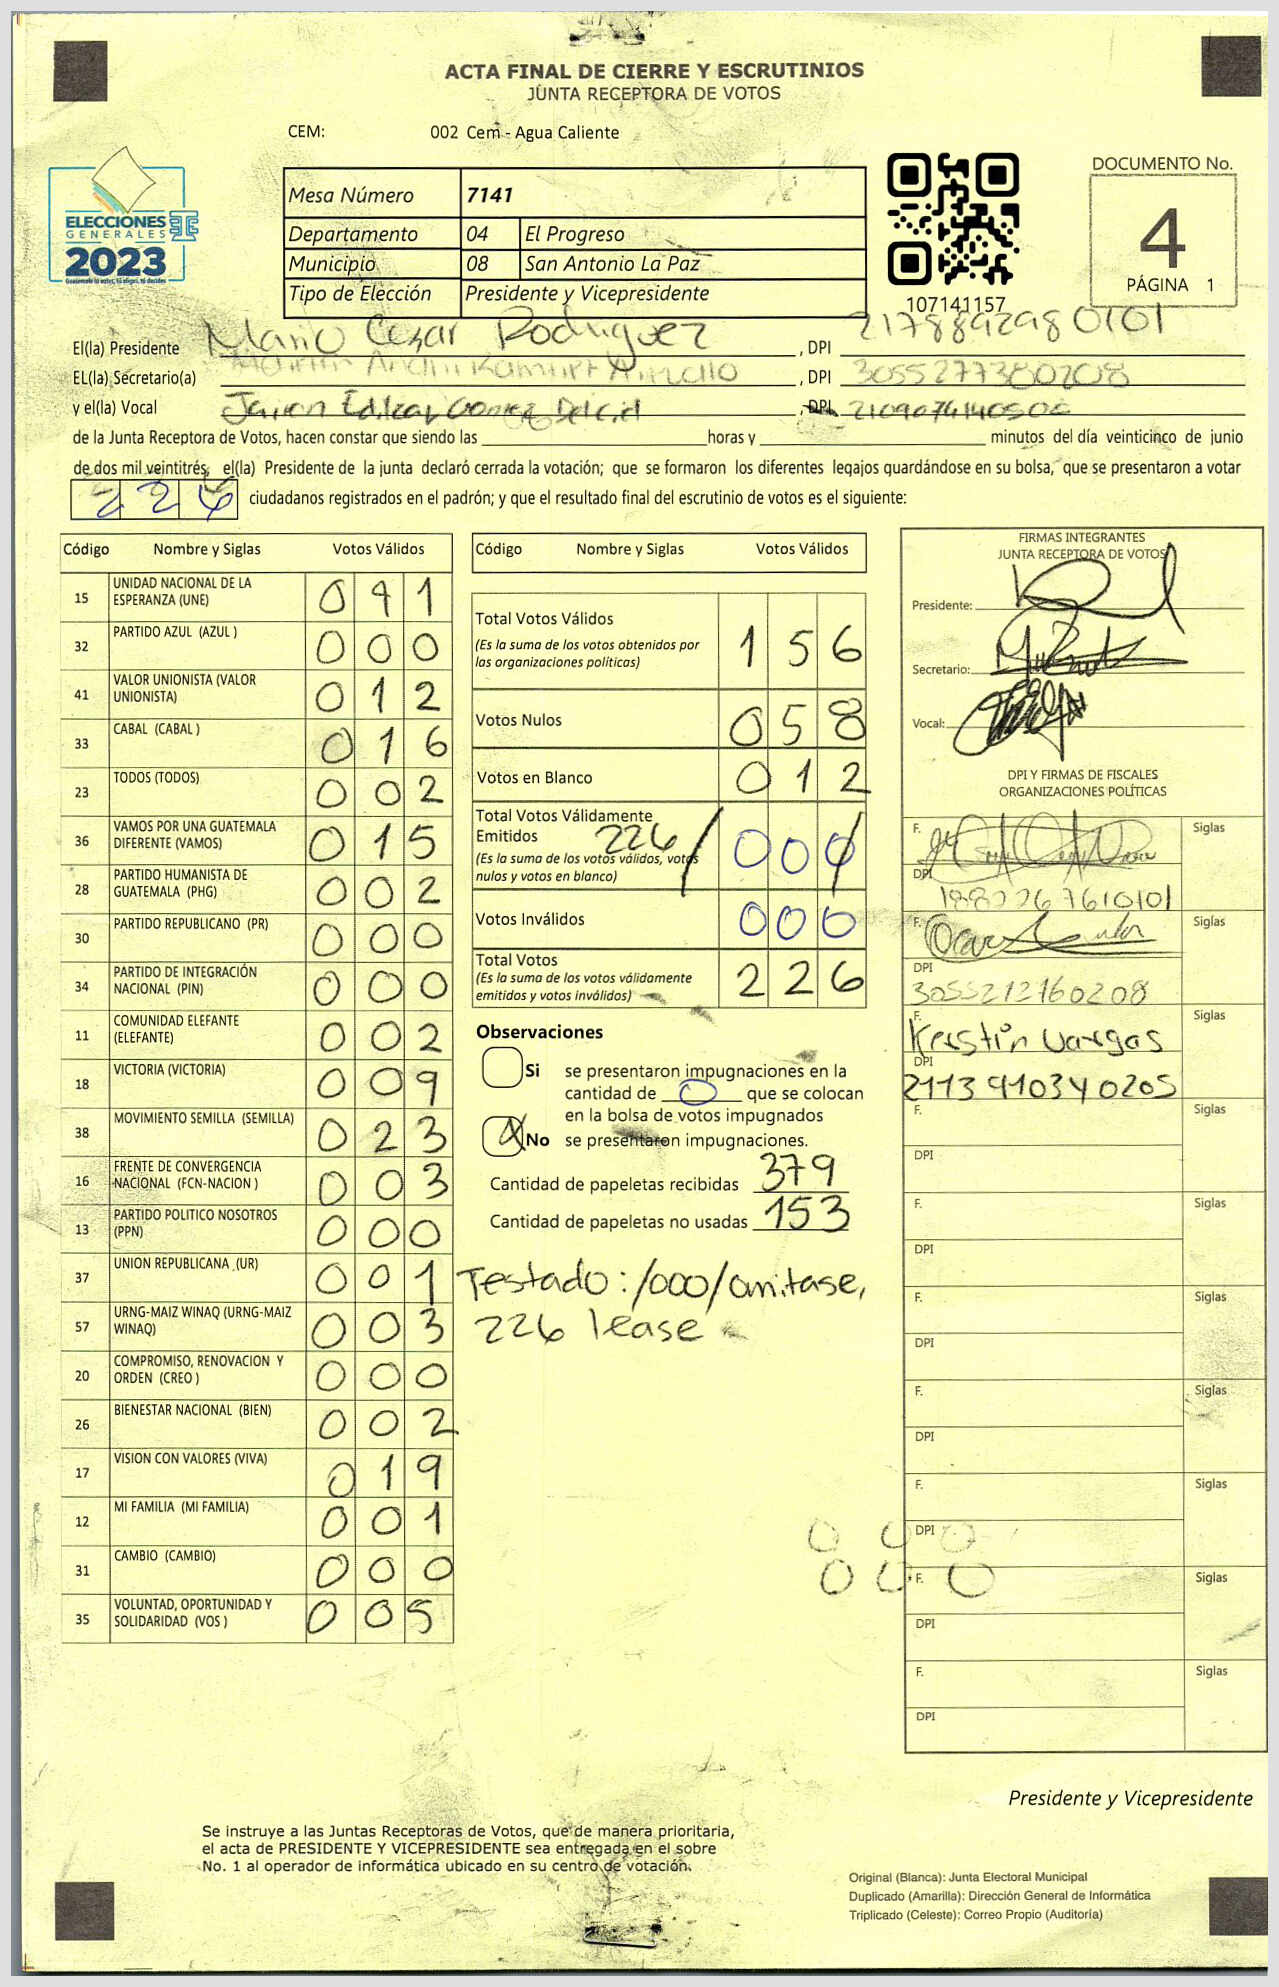 ACTA FINAL DE CIERRE Y ESCRUTINIOS
JUNTA RECEPTORA DE VOTOS
CEM: 002 Cem - Agua Caliente
ELECCIONES
GENERALES
2023
Mesa Número 7141
Departamento 04 El Progreso
Municipio 08 San Antonio La Paz
Tipo de Elección Presidente y Vicepresidente
107141157
DOCUMENTO No.
4
PÁGINA 1
El(la) Presidente Mario Cezar Rodriguez , DPI 2178892980101
EL(la) Secretario(a) , DPI 3055277380208
y el(la) Vocal Gomez Delcid , DPI
de la Junta Receptora de Votos, hacen constar que siendo las horas y minutos del día veinticinco de junio
de dos mil veintitrés, el(la) Presidente de la junta declaró cerrada la votación; que se formaron los diferentes legajos guardándose en su bolsa, que se presentaron a votar
226 ciudadanos registrados en el padrón; y que el resultado final del escrutinio de votos es el siguiente:
Código Nombre y Siglas Votos Válidos
15 UNIDAD NACIONAL DE LA ESPERANZA (UNE) 0 4 1
32 PARTIDO AZUL (AZUL ) 0 0 0
41 VALOR UNIONISTA (VALOR UNIONISTA) 0 1 2
33 CABAL (CABAL ) 0 1 6
23 TODOS (TODOS) 0 0 2
36 VAMOS POR UNA GUATEMALA DIFERENTE (VAMOS) 0 1 5
28 PARTIDO HUMANISTA DE GUATEMALA (PHG) 0 0 2
30 PARTIDO REPUBLICANO (PR) 0 0 0
34 PARTIDO DE INTEGRACIÓN NACIONAL (PIN) 0 0 0
11 COMUNIDAD ELEFANTE (ELEFANTE) 0 0 2
18 VICTORIA (VICTORIA) 0 0 9
38 MOVIMIENTO SEMILLA (SEMILLA) 0 2 3
16 FRENTE DE CONVERGENCIA NACIONAL (FCN-NACION ) 0 0 3
13 PARTIDO POLITICO NOSOTROS (PPN) 0 0 0
37 UNION REPUBLICANA (UR) 0 0 1
57 URNG-MAIZ WINAQ (URNG-MAIZ WINAQ) 0 0 3
20 COMPROMISO, RENOVACION Y ORDEN (CREO ) 0 0 0
26 BIENESTAR NACIONAL (BIEN) 0 0 2
17 VISION CON VALORES (VIVA) 0 1 9
12 MI FAMILIA (MI FAMILIA) 0 0 1
31 CAMBIO (CAMBIO) 0 0 0
35 VOLUNTAD, OPORTUNIDAD Y SOLIDARIDAD (VOS ) 0 0 5
Código Nombre y Siglas Votos Válidos
Total Votos Válidos 1 5 6
(Es la suma de los votos obtenidos por
las organizaciones políticas)
Votos Nulos 0 5 8
Votos en Blanco 0 1 2
Total Votos Válidamente
Emitidos 226 / 0 0 0 /
(Es la suma de los votos válidos, votos
nulos y votos en blanco)
Votos Inválidos 0 0 0
Total Votos 2 2 6
(Es la suma de los votos válidamente
emitidos y votos inválidos)
Observaciones
Si se presentaron impugnaciones en la
cantidad de 0 que se colocan
en la bolsa de votos impugnados
X No se presentaron impugnaciones.
Cantidad de papeletas recibidas 379
Cantidad de papeletas no usadas 153
Testado: /000/ omitase,
226 lease
FIRMAS INTEGRANTES
JUNTA RECEPTORA DE VOTOS
Presidente:
Secretario:
Vocal:
DPI Y FIRMAS DE FISCALES
ORGANIZACIONES POLÍTICAS
F. Siglas
DPI
F. Siglas
DPI
3055212160208
F. Kerstin Vargas Siglas
DPI
2113910340205
F. Siglas
DPI
F. Siglas
DPI
F. Siglas
DPI
F. Siglas
DPI
F. Siglas
DPI 0 0 0
0 0 0 F. Siglas
DPI
F. Siglas
DPI
Presidente y Vicepresidente
Se instruye a las Juntas Receptoras de Votos, que de manera prioritaria,
el acta de PRESIDENTE Y VICEPRESIDENTE sea entregada en el sobre
No. 1 al operador de informática ubicado en su centro de votación.
Original (Blanca): Junta Electoral Municipal
Duplicado (Amarilla): Dirección General de Informática
Triplicado (Celeste): Correo Propio (Auditoría)